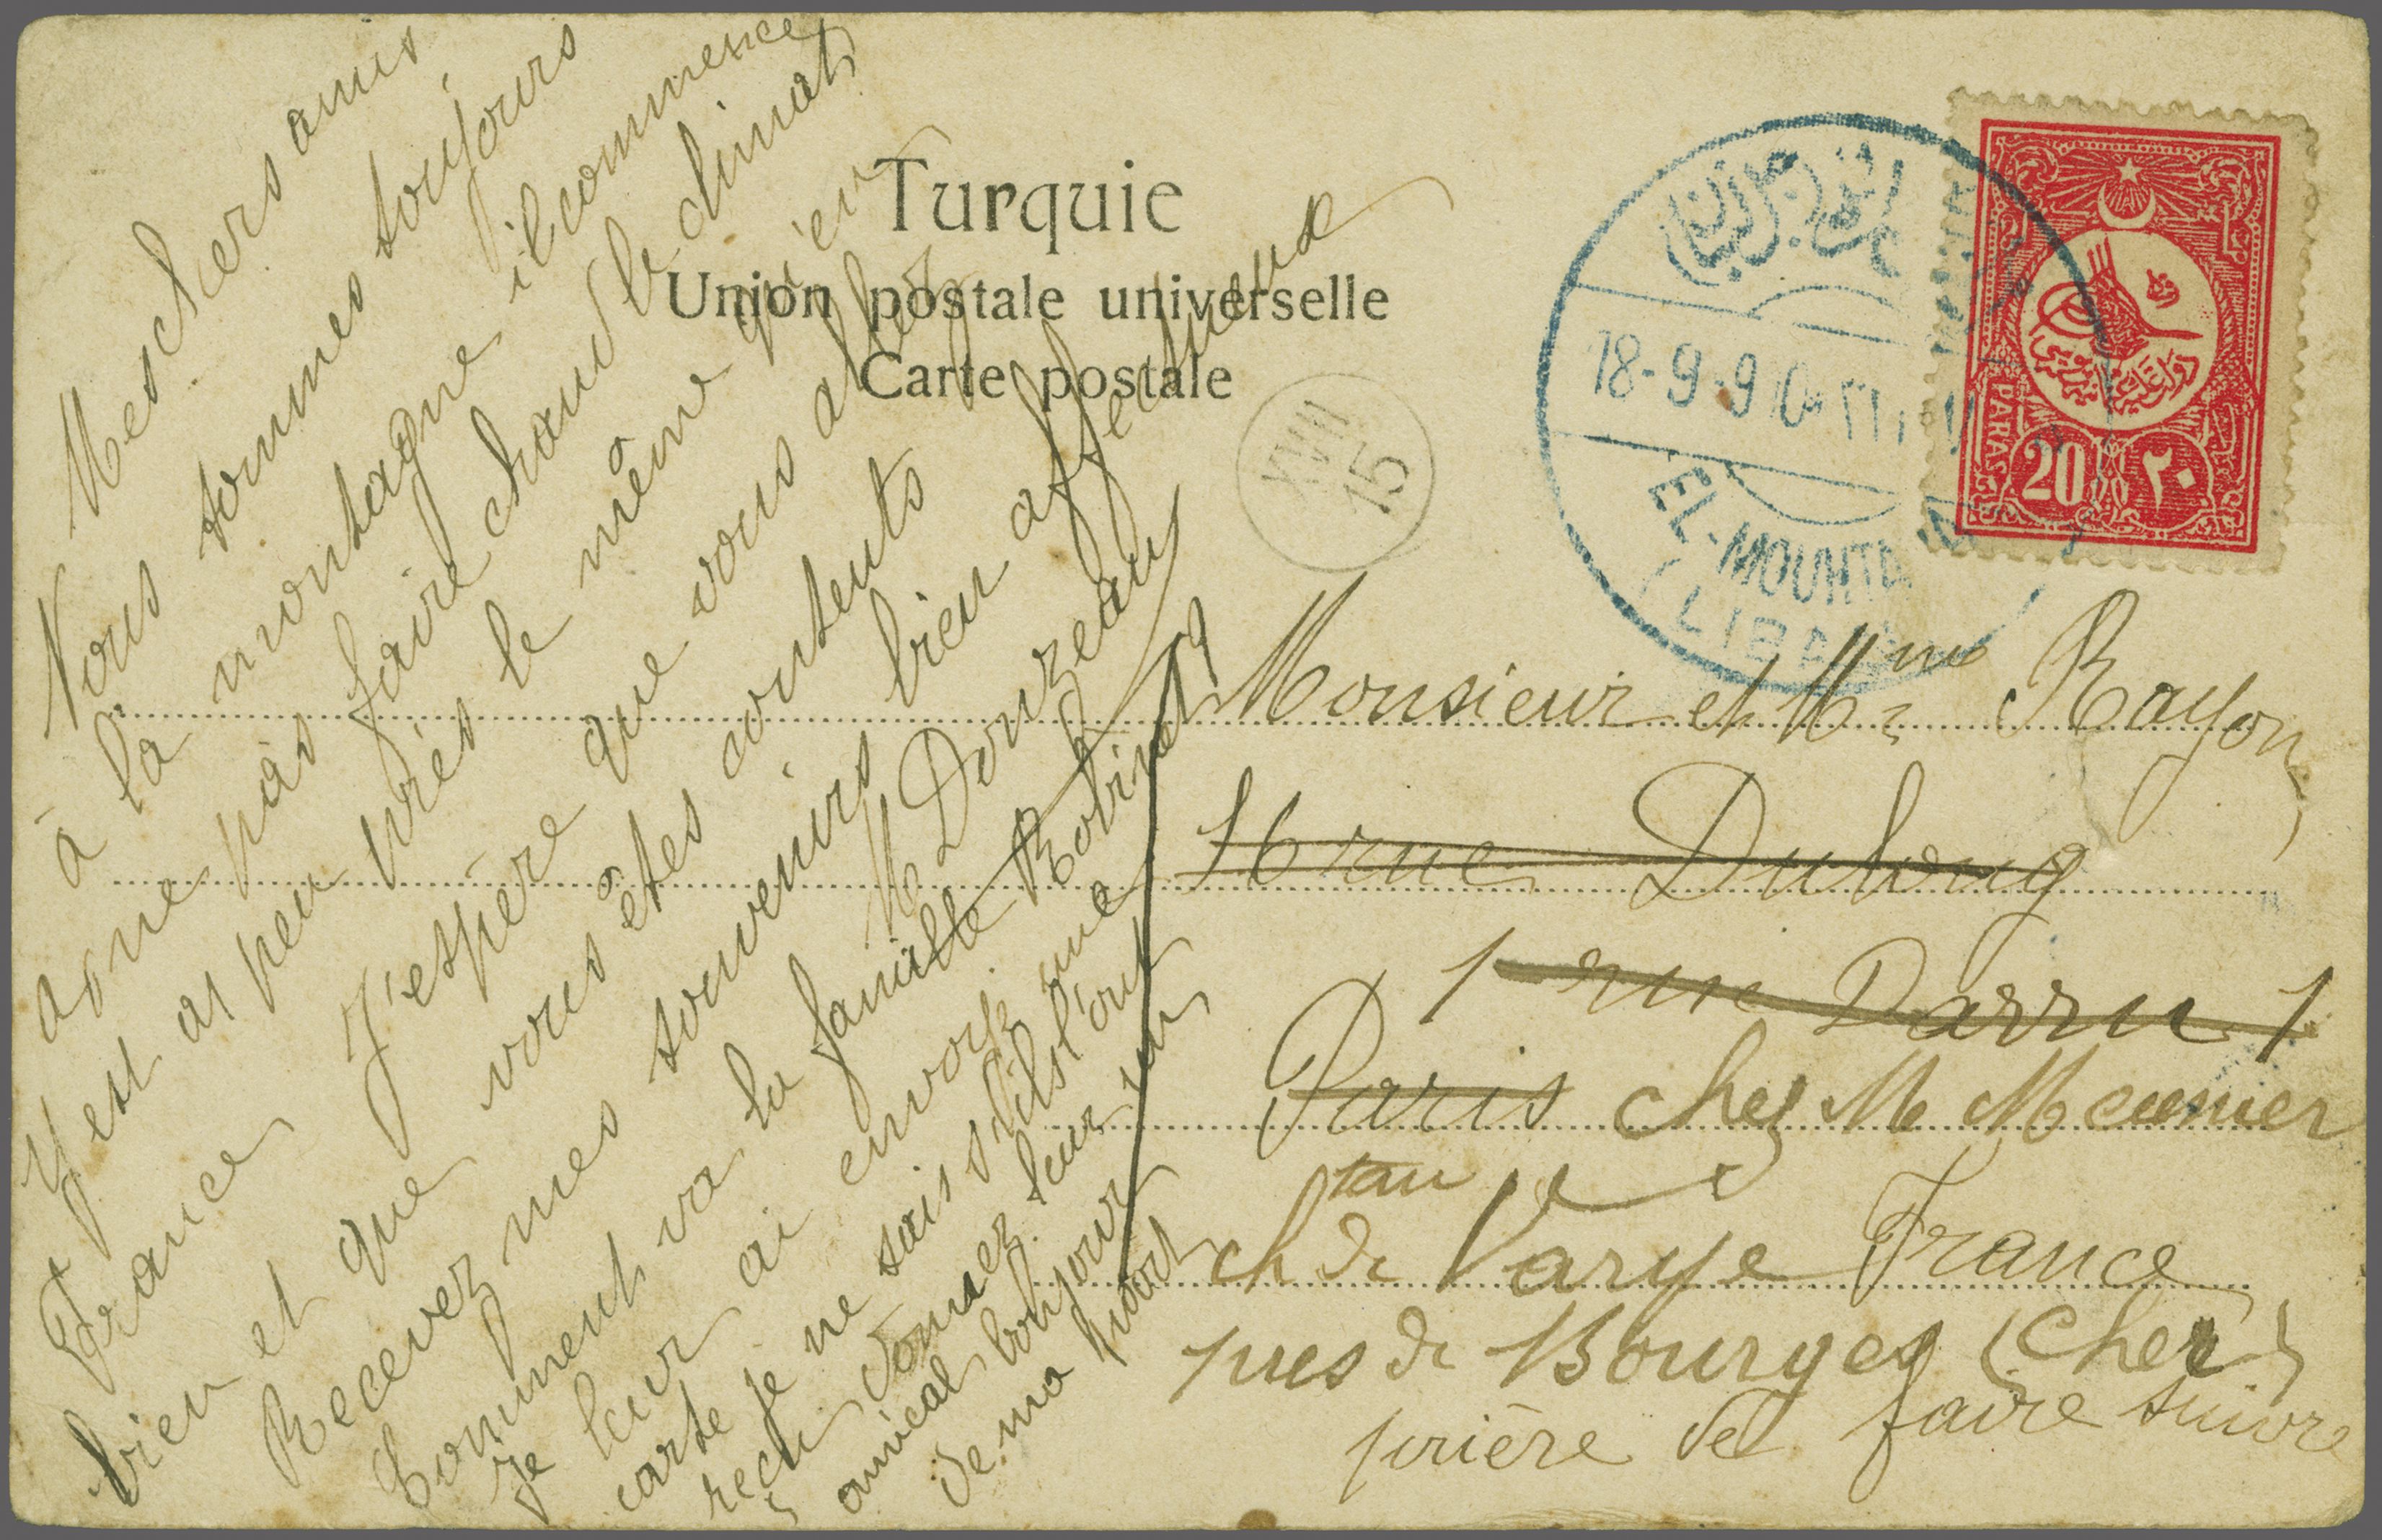 Mes chers amis
Nous sommes toujours
à la montagne il commence
a ne pas faire chaud le climat
y est a peu près le même qu'en
France J'espère que vous allez
bien et que vous êtes contents
Recevez mes souvenirs bien affectueux
M Donzeau
Comment va la famille Robinet?
Je leur ai envoyé une
carte je ne sais s'ils l'ont
reçu donnez leur un
amical bonjour
de ma part
Turquie
Union postale universelle
Carte postale
XVII
15
18-9-910
EL-MOUHTA
(LIBA
PARAS
20
٢٠
Monsieur et Mme Rayon
16 rue Dulong
1 rue Darru 1
Paris chez M Meunier
chtau de Varye France
pres de Bourges (Cher)
prière de faire suivre